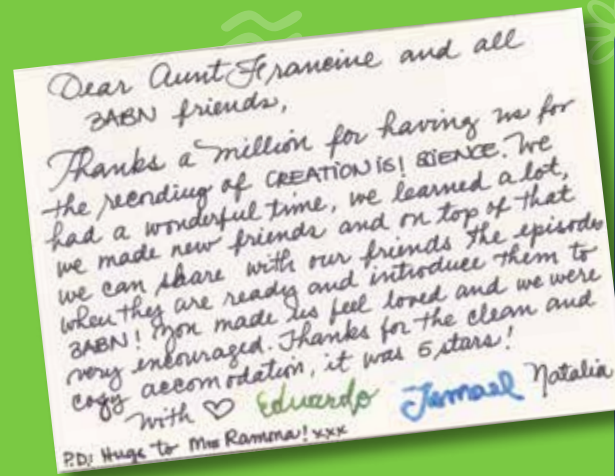 Dear Aunt Francine and all
3ABN friends,
Thanks a million for having us for
the recording of CREATION iS! SCIENCE. We
had a wonderful time, we learned a lot,
we made new friends and on top of that
we can share with our friends the episodes
when they are ready and introduce them to
3ABN! You made us feel loved and we were
very encouraged. Thanks for the clean and
cozy accomodation, it was 5 stars!
With ♡ Eduardo Ismael Natalia
P.D: Hugs to Mrs Ramona! xxx